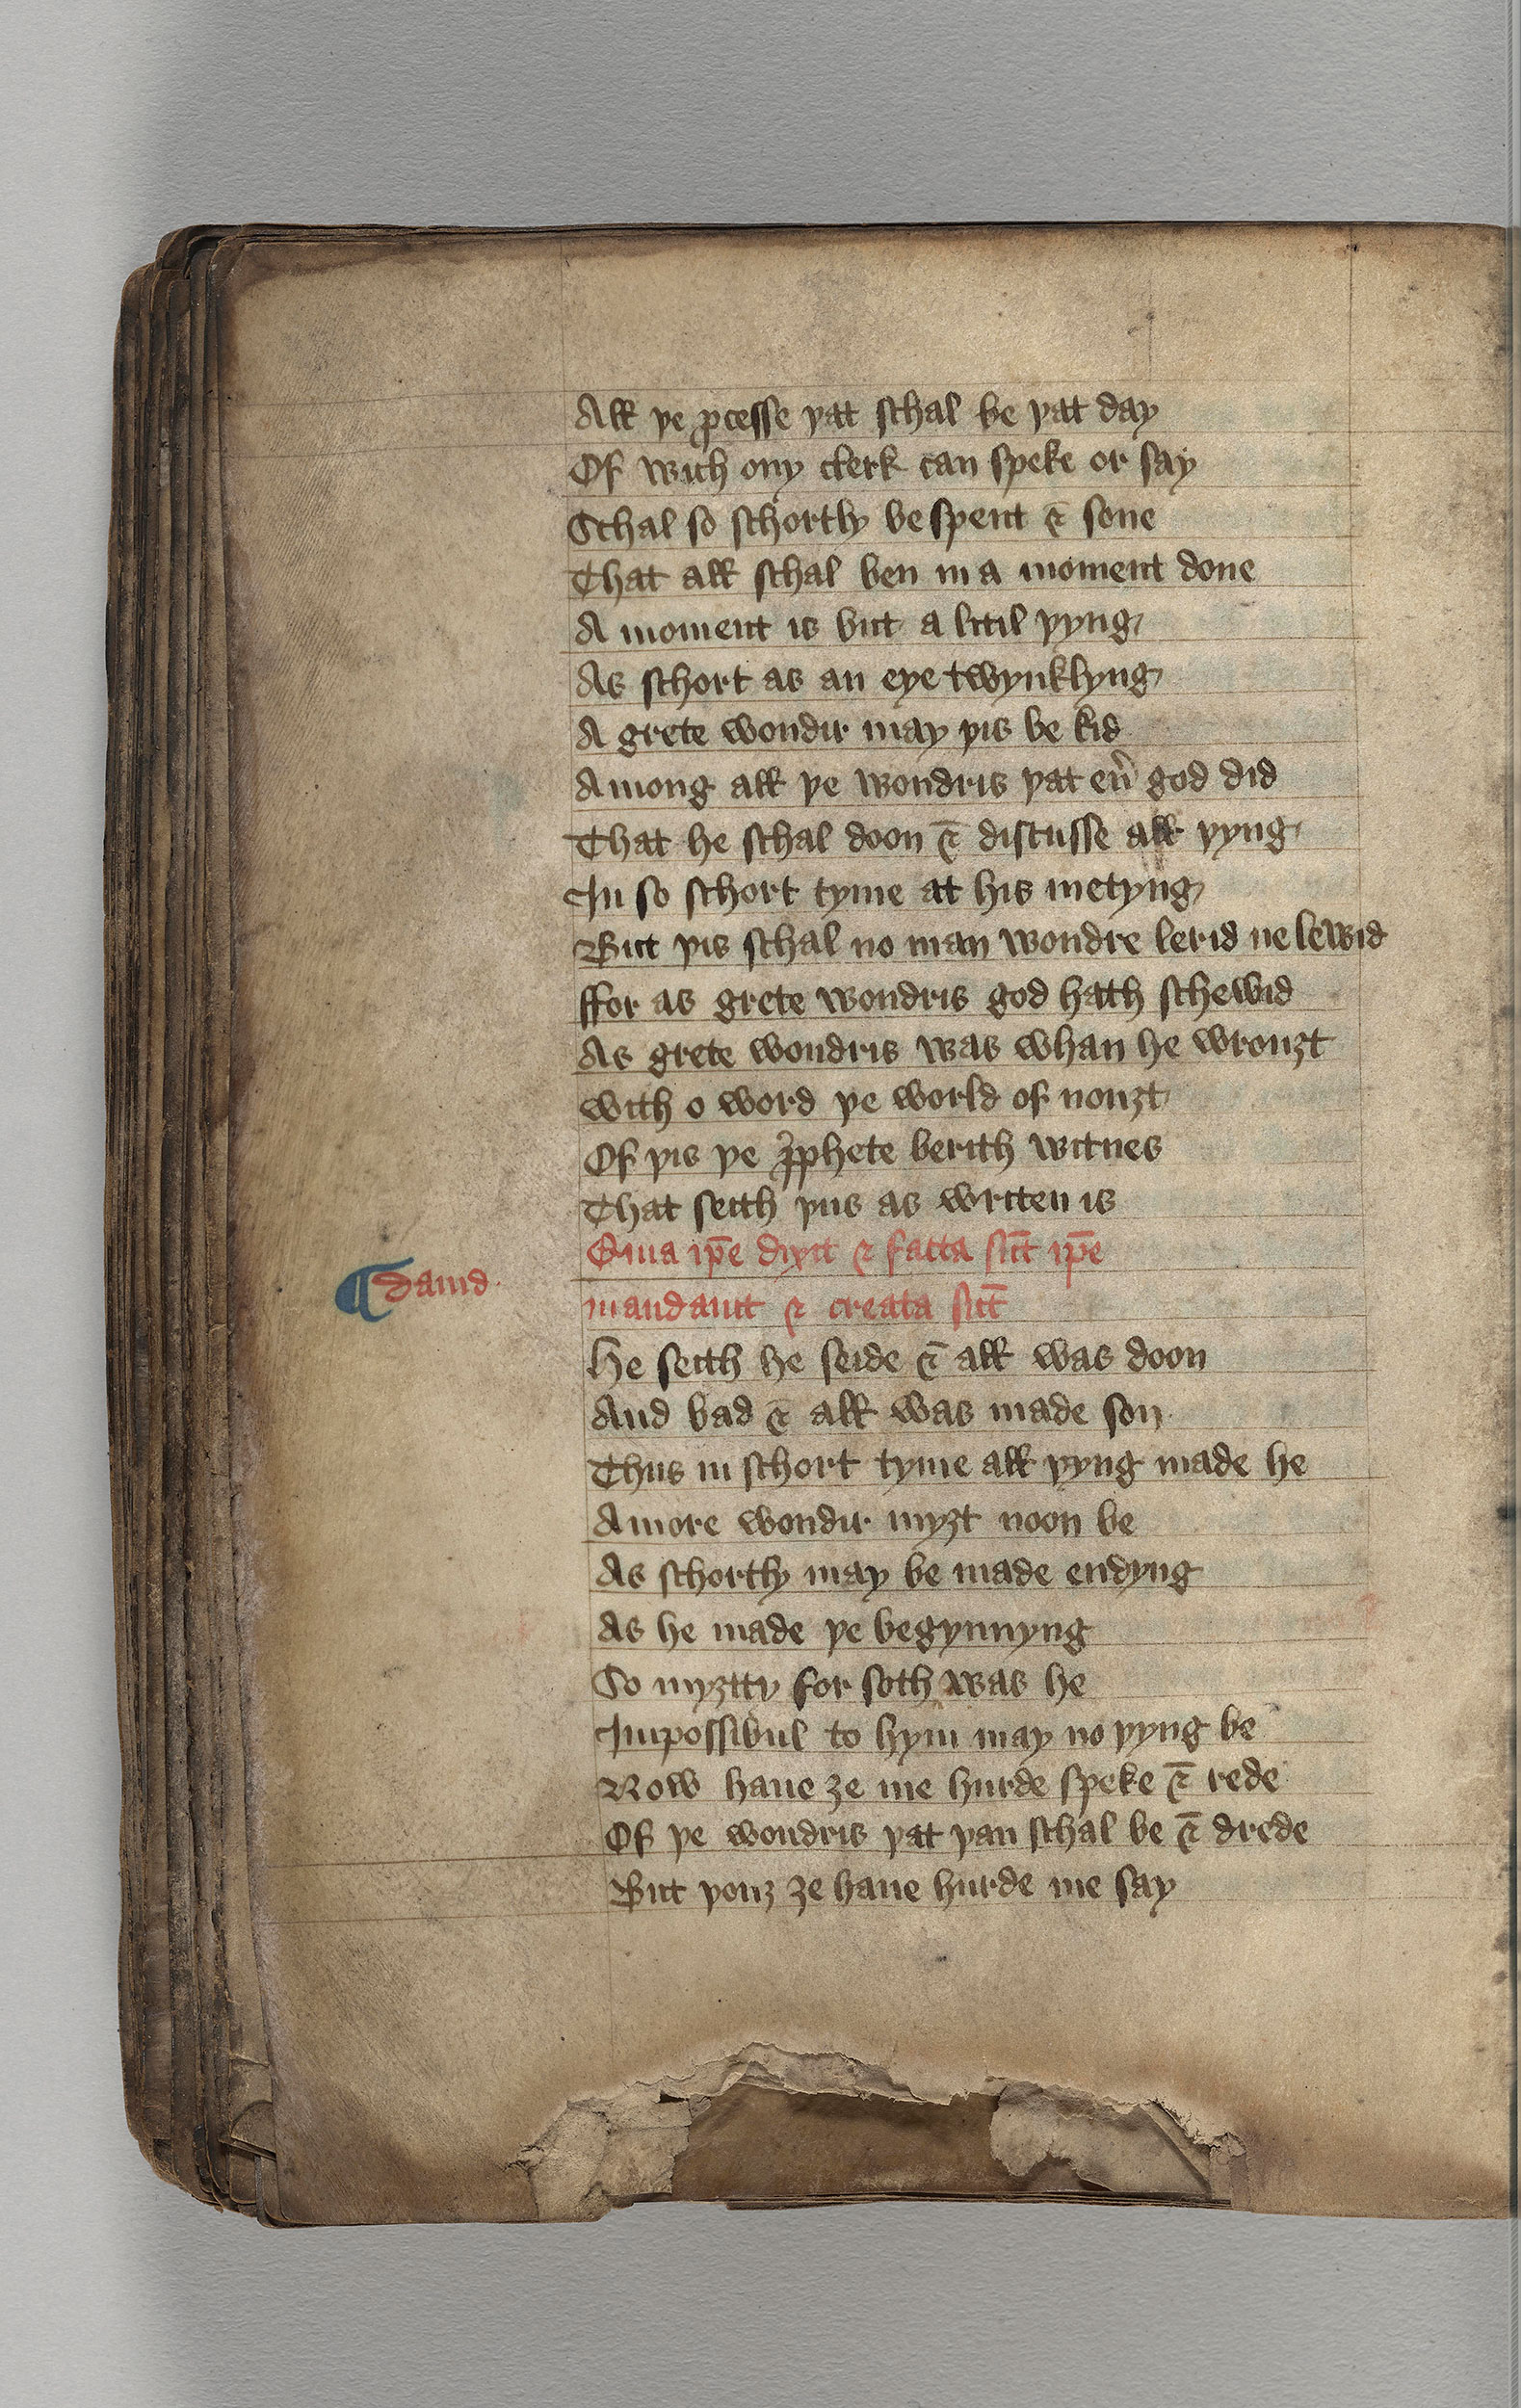 All þe ꝓcesse þat schal be þat day
Of wich ony clerk can speke or say
Schal so schortly be spent ⁊ sone
That all schal ben in a moment done
A moment is but a litil þyng
As schort as an eye twynklyng
A grete wondir may þis be kid
Among all þe wondris þat eu̓ god did
That he schal doon ⁊ discusse all þyng
In so schort tyme at his metyng
But þis schal no man wondre lerid ne lewid
ffor as grete wondris god hath schewid
As grete wondris was whan he wrouȝt
with o word þe world of nouȝt
Of þis þe ꝓphete berith witnes
That seith þus as writen is
Quia ip̄e dixit ⁊ facta su̅t ip̄e
¶ dauid
mandauit ⁊ creata su̅t
He seith he seide ⁊ all was doon
And bad ⁊ all was made son
Thus in schort tyme all þyng made he
A more wondir myȝt noon be
As schortly may be made endyng
As he made þe begynnyng
So myȝtty for soth was he
Impossibul to hym may no þyng be
Now haue ȝe me hurde speke ⁊ rede
Of þe wondris þat þan schal be ⁊ drede
But þouȝ ȝe haue hurde me say